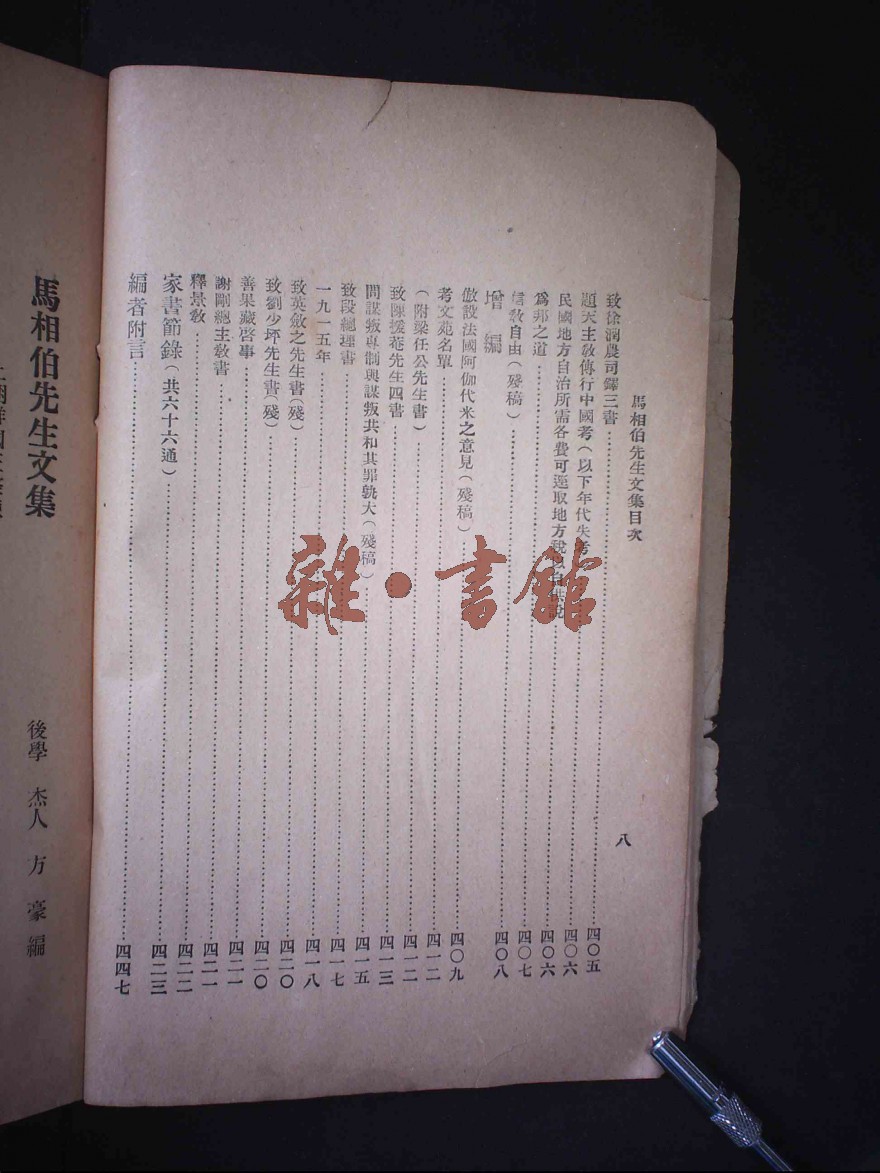 馬相伯先生文集目次
八
致徐潤農司鐸三書……四〇五
題天主教傳行中國考（以下年代失考）……四〇六
民國地方自治所需各費可逕取地方稅以自供說……四〇六
爲邦之道……四〇七
信教自由（殘稿）……四〇八
增編
倣設法國阿伽代米之意見（殘稿）……四〇九
考文苑名單……四一二
（附梁任公先生書）……四一二
致陳援菴先生四書……四一三
問謀叛專制與謀叛共和其罪孰大（殘稿）……四一五
致段總理書……四一七
一九一五年……四一八
致英斂之先生書（殘）……四二〇
致劉少坪先生書（殘）……四二〇
善果藏啓事……四二一
謝剛總主教書……四二一
釋景教……四二二
家書節錄（共六十六通）……四二三
編者附言……四四七
馬相伯先生文集
後學 杰人 方豪編
雜·書館